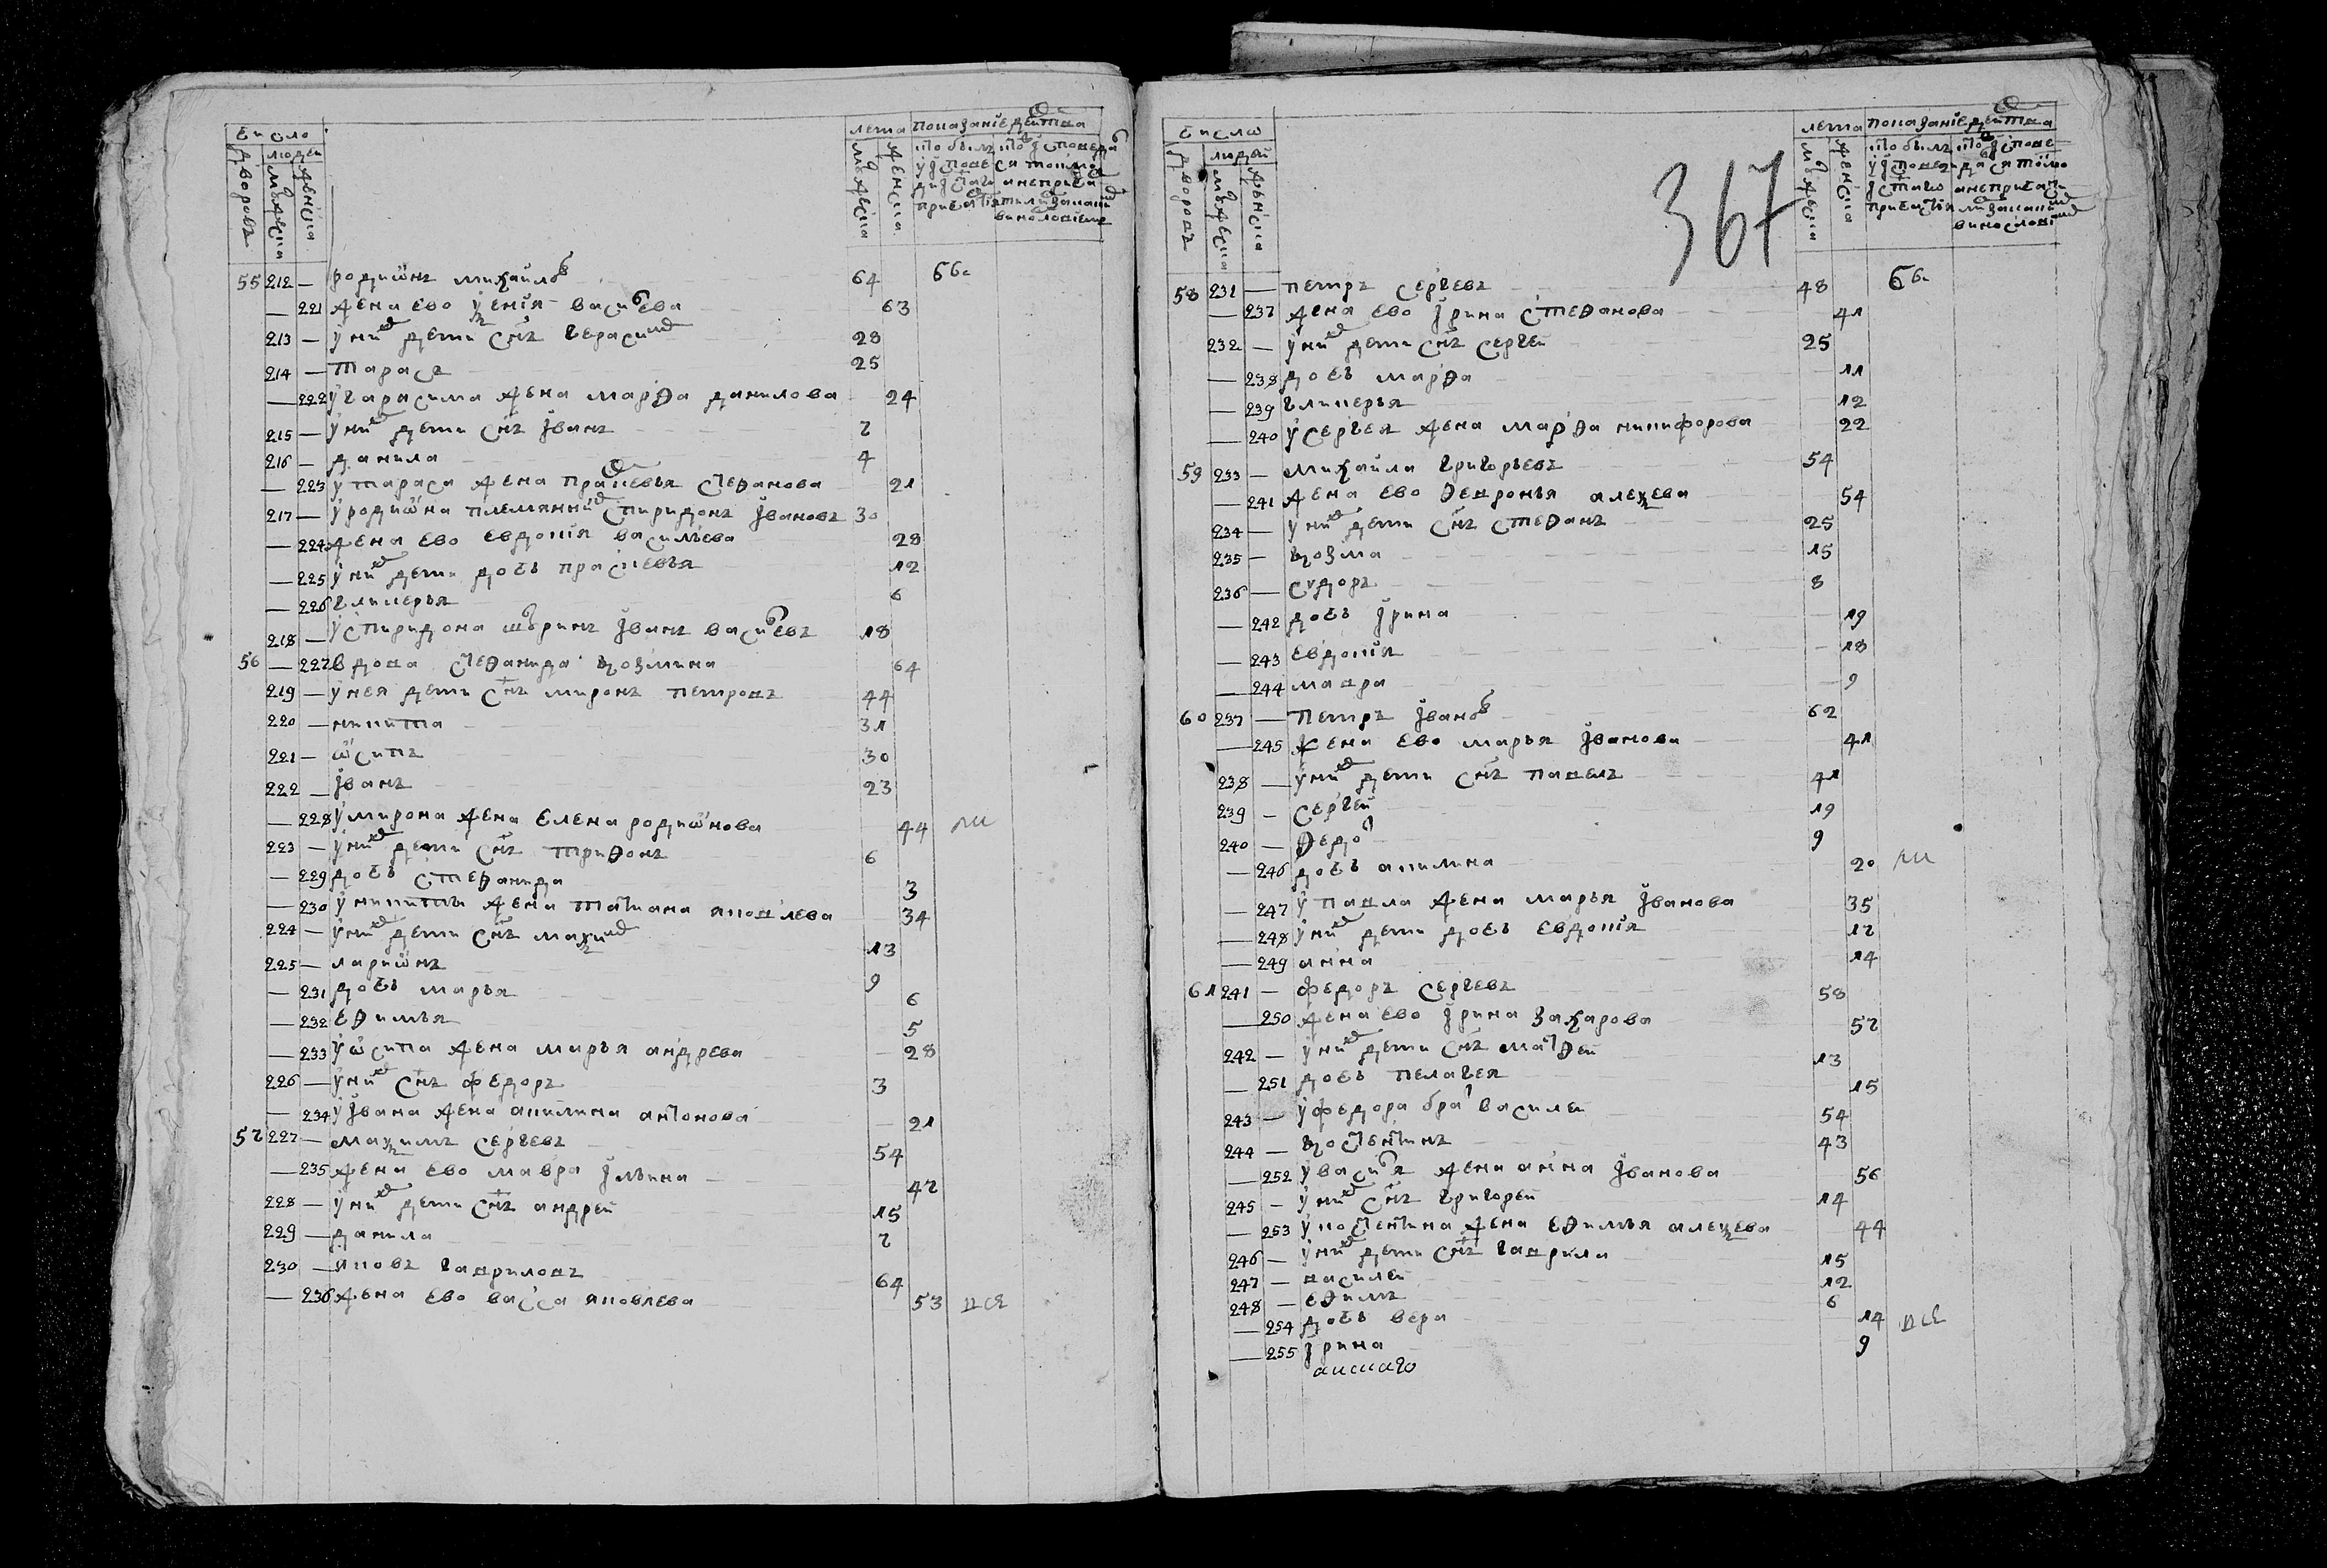 число
людей
дворовъ
мужеска
женска
лета
мужеска
женска
показание действа
55 212 — родиѡнъ михайловъ 64 бы
— 221 жена ево ѯения васильева 63
213 — у них дети сн҃ъ герасим 28
214 — тарасъ 25
— 222 у гарасима жена марѳа данилова 24
215 — у них дети сн҃ъ іванъ 7
216 — данила 4
— 223 у тараса жена прасковья стеѳанова 21
217 — у родиѡна племянник спиридонъ івановъ 30
— 224 жена ево евдокия василъева 28
— 225 у них дети дочь прасковья 12
— 226 гликерья 6
218 — у спиридона шуринъ іванъ васильевъ 18
56 — 227 вдова стеѳанида козмина 64
219 — у нея дети сн҃ъ миронъ петровъ 44
220 — никита 31
221 — ѡсипъ 30
222 — іванъ 23
— 228 у мирона жена елена родиѡнова 44
223 — у них дети сн҃ъ триѳонъ 6
— 229 дочь стеѳанида 3
— 230 у никиты жена татиана яковлева 34
224 — у них дети сн҃ъ маѯим 13
225 — лариѡнъ 9
— 231 дочь марья 6
— 232 еѳимья 5
— 233 у ѡсипа жена марья андрева 28
226 — у них сн҃ъ федоръ 3
— 234 у івана жена акилина антонова 21
57 227 — маѯимъ сергевъ 54
— 235 жена ево мавра ілъина 47
228 — у них дети сн҃ъ андрей 15
229 — данила 7
230 — яковъ гавриловъ 64
— 236 жена ево васса яковлева 53 все
367
числѡ
людей
дворовъ
мужеска
женска
лета
мужеска
женска
показание действа
58 231 — петръ сергевъ 48 бы
— 237 жена ево ірина стеѳанова 41
232 — у них дети сн҃ъ сергей 25
— 238 дочь марѳа 11
— 239 гликерья 12
— 240 у сергея жена марѳа никифорова 22
59 233 — михайла григорьевъ 54
— 241 жена ево ѳевронья алеѯева 54
234 — у них дети сн҃ъ стеѳанъ 25
235 — козма 15
236 — сѵдоръ 8
— 242 дочь ірина 19
— 243 евдокия 18
— 244 мавра 9
60 237 — петръ іванов 62
— 245 жена ево марья іванова 41
238 — у них дети сн҃ъ павелъ 41
239 — сергей 19
240 — ѳедо 9
— 246 дочь акилина 20
— 247 у павла жена марья іванова 35
— 248 у них дети дочь евдокия 17
— 249 анна 14
61 241 — федоръ сергевъ 58
— 250 жена ево ірина захарова 57
242 — у них дети сн҃ъ матѳей 13
— 251 дочь пелагея 15
243 — у федора брат василей 54
244 — костентинъ 43
— 252 у василья жена анна іванова 56
245 — у них сн҃ъ григорей 14
— 253 у костентина жена еѳимья алеѯева 44
246 — у них дети сн҃ъ гаврила 15
247 — василей 12
248 — еѳимъ 6
— 254 дочь вера 14 все
— 255 ірина 9